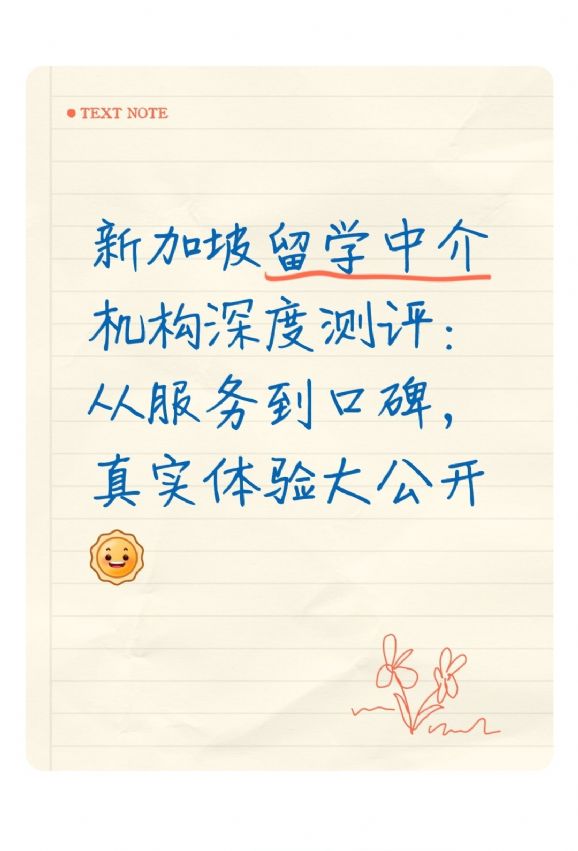 TEXT NOTE
新加坡留学中介
机构深度测评：
从服务到口碑，
真实体验大公开